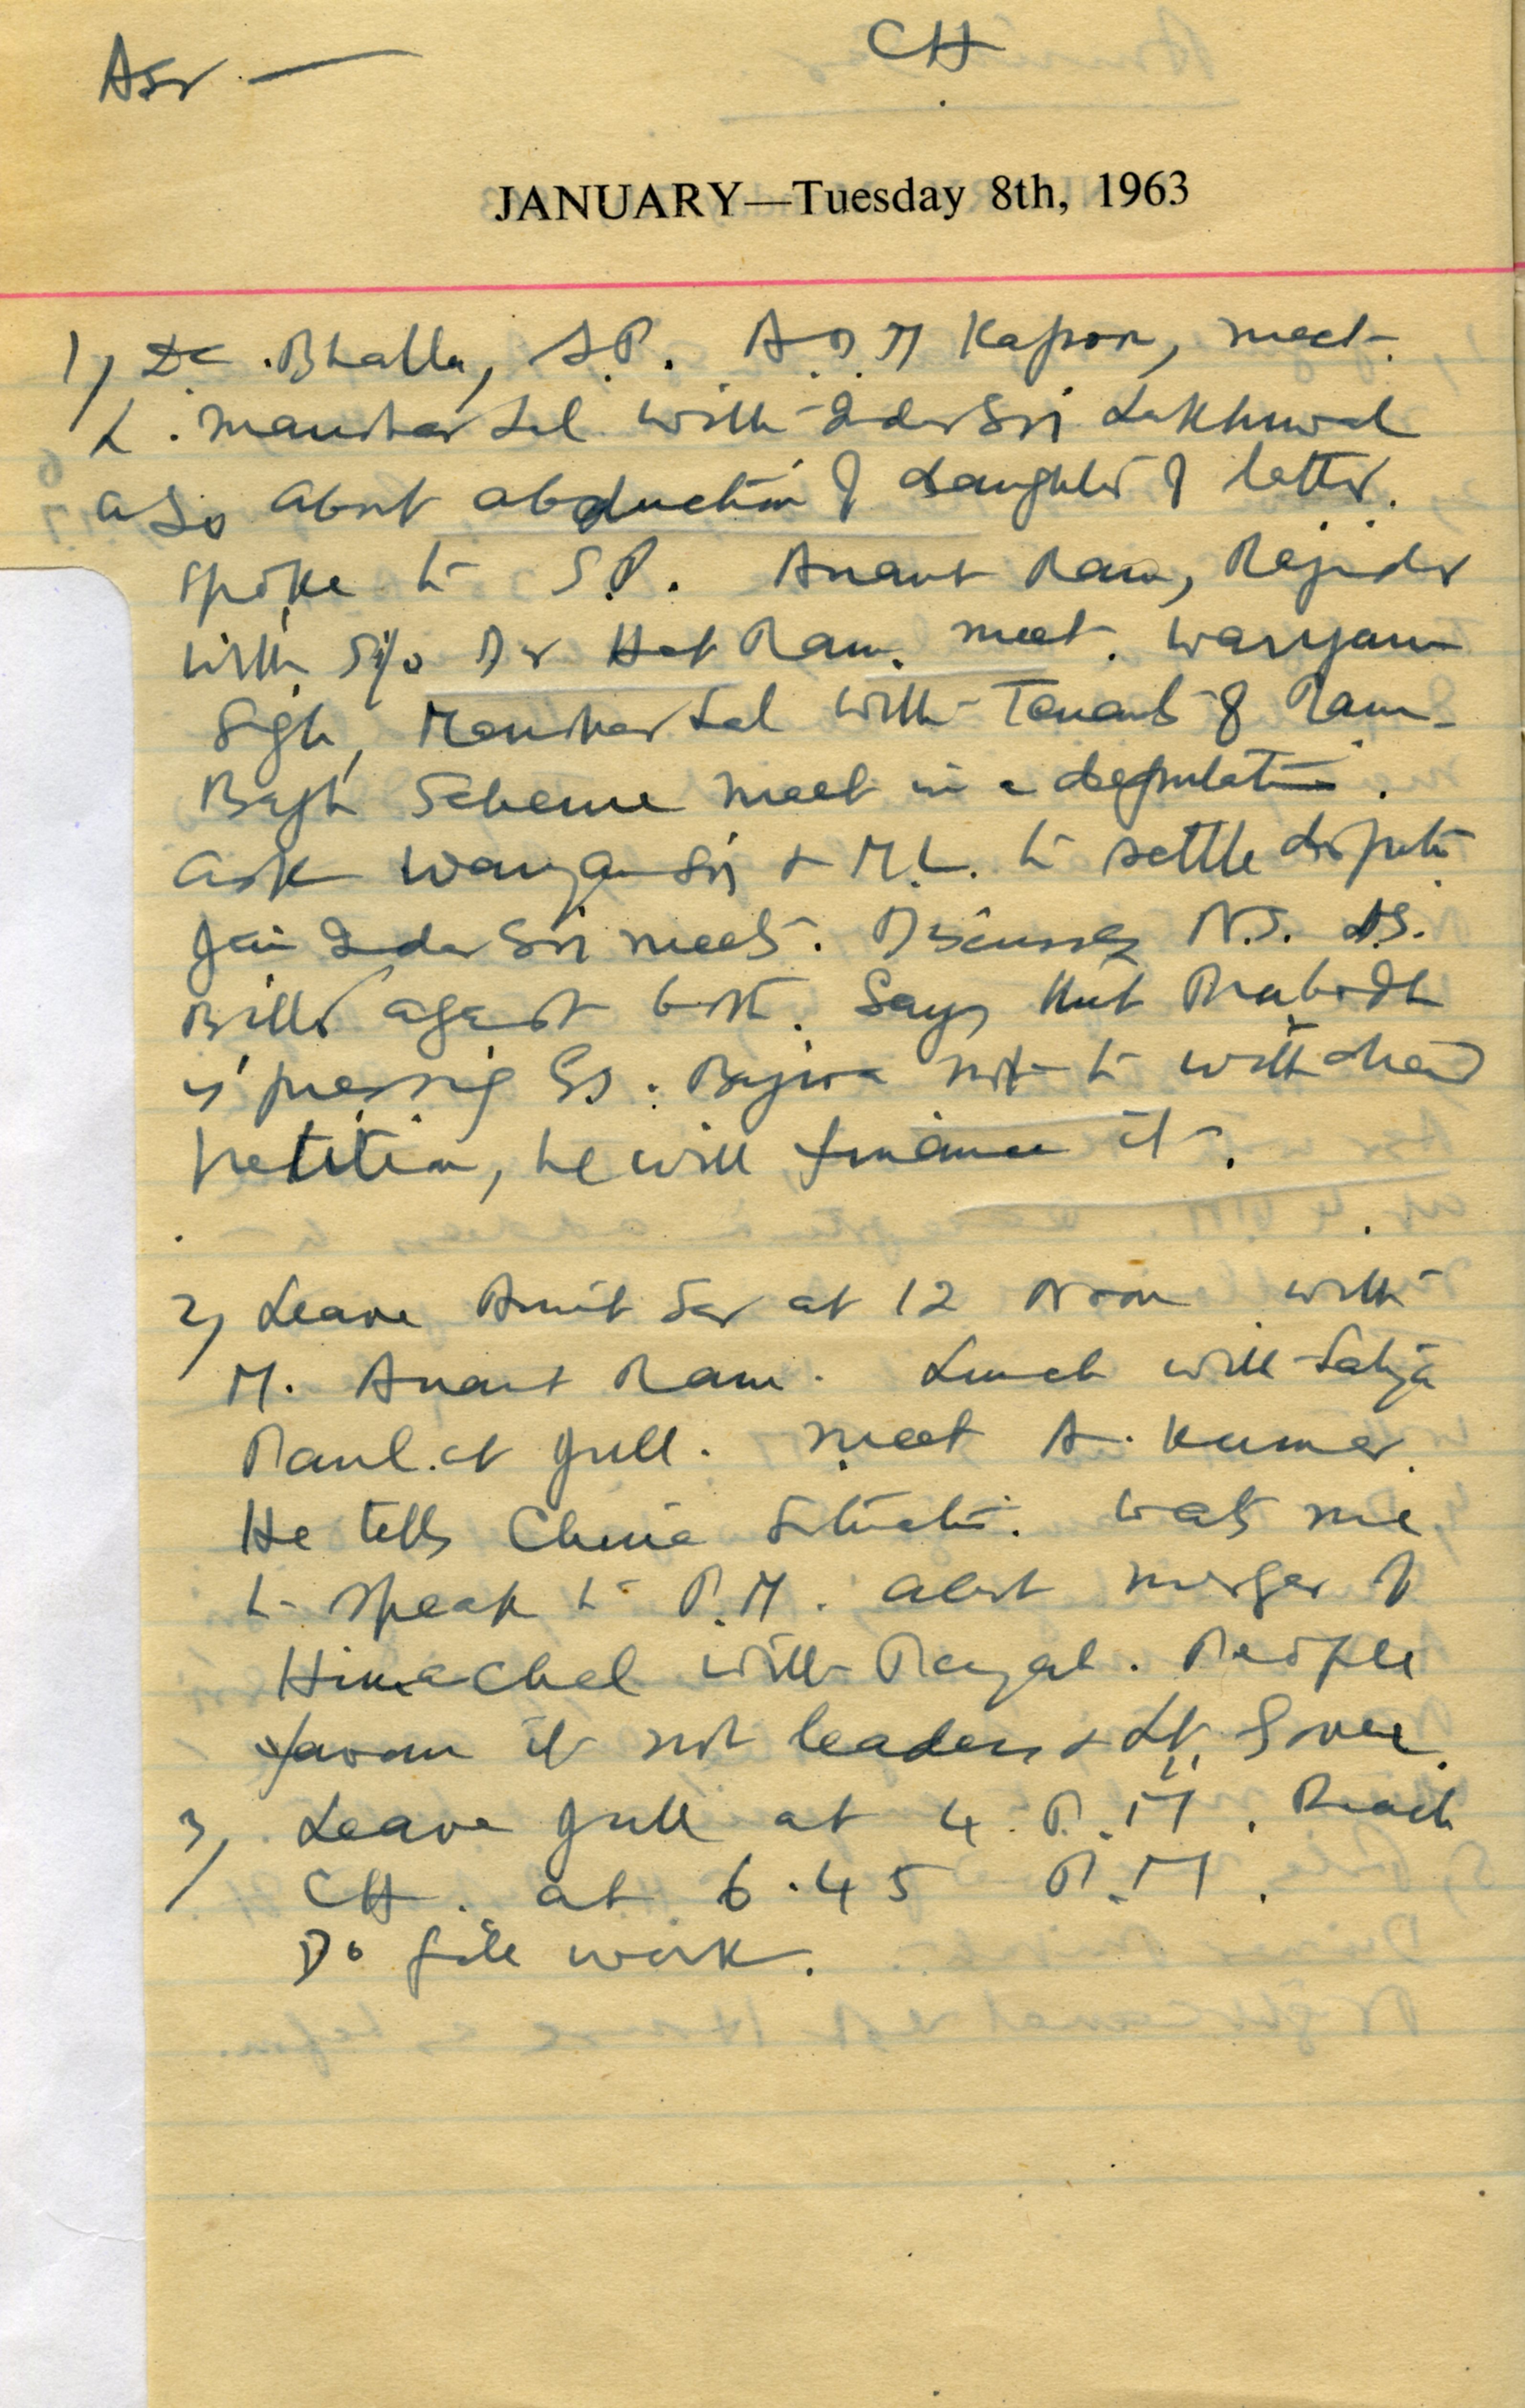 Asr — CH
JANUARY—Tuesday 8th, 1963
1) DC. Bhalla, S.P. A D M Kapoor, meet.
L. Manohar Lal with Inder Sri Lakhuwal
also about abduction of daughter of latter.
Spoke to S.P. Anant Ram, Rajinder
with s/o Dr Het Ram. meet. Waryam
Sigh, Manohar Lal with Tenants of Ram
Bagh Scheme meet in a deputation.
ask Waryam Sri & M.L. to settle dispute
Inder Sri meets. Discusses N.S. D.S.
against both. Says that Prabodh
is pressing . Bajwa not to withdraw
petition, he will finance it.
2) Leave Amrit Sar at 12 Noon with
M. Anant Ram. Lunch with Satya
Paul at Jull. meet A. Kumar.
He tells China Situation. wants me
to speak to P.M. about merger of
Himachal with Punjab. People
favour it not leaders & Lt. Gover.
3) Leave Jull at 4. P.M. Reach
CH. at 6.45 P.M.
Do file work.